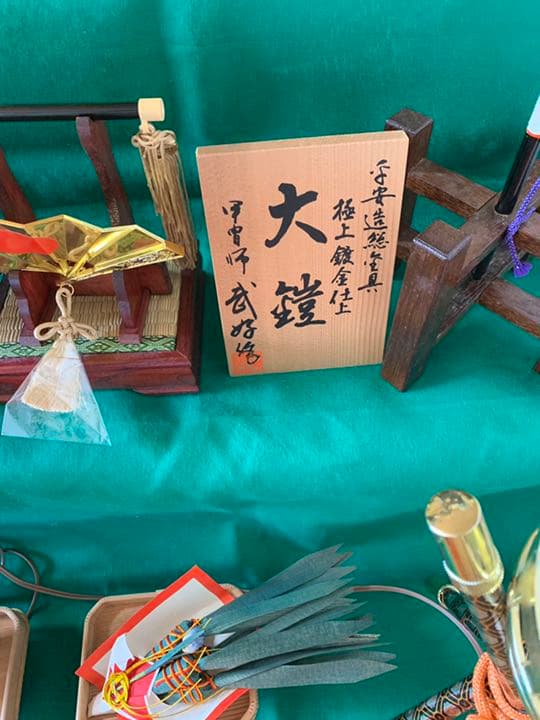 平安造総金具
極上鍍金仕上
大鎧
甲冑師 武好作